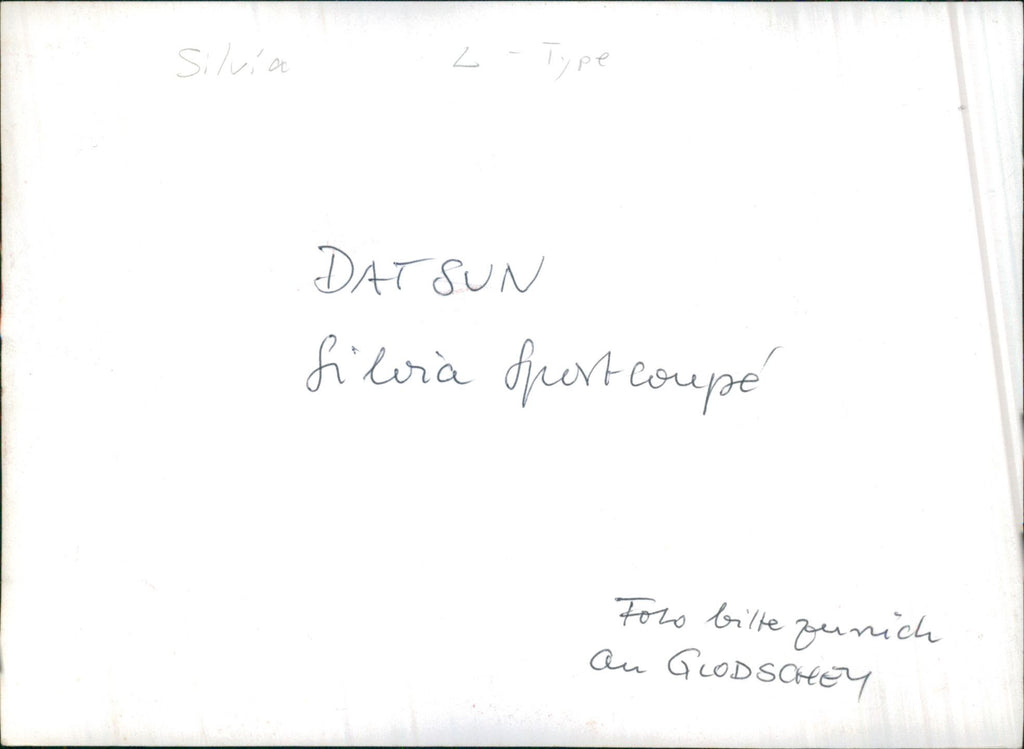 Silvia L - Type
DATSUN
Silvia Sportcoupé
Foto bitte zurück
an GLODSCHEY